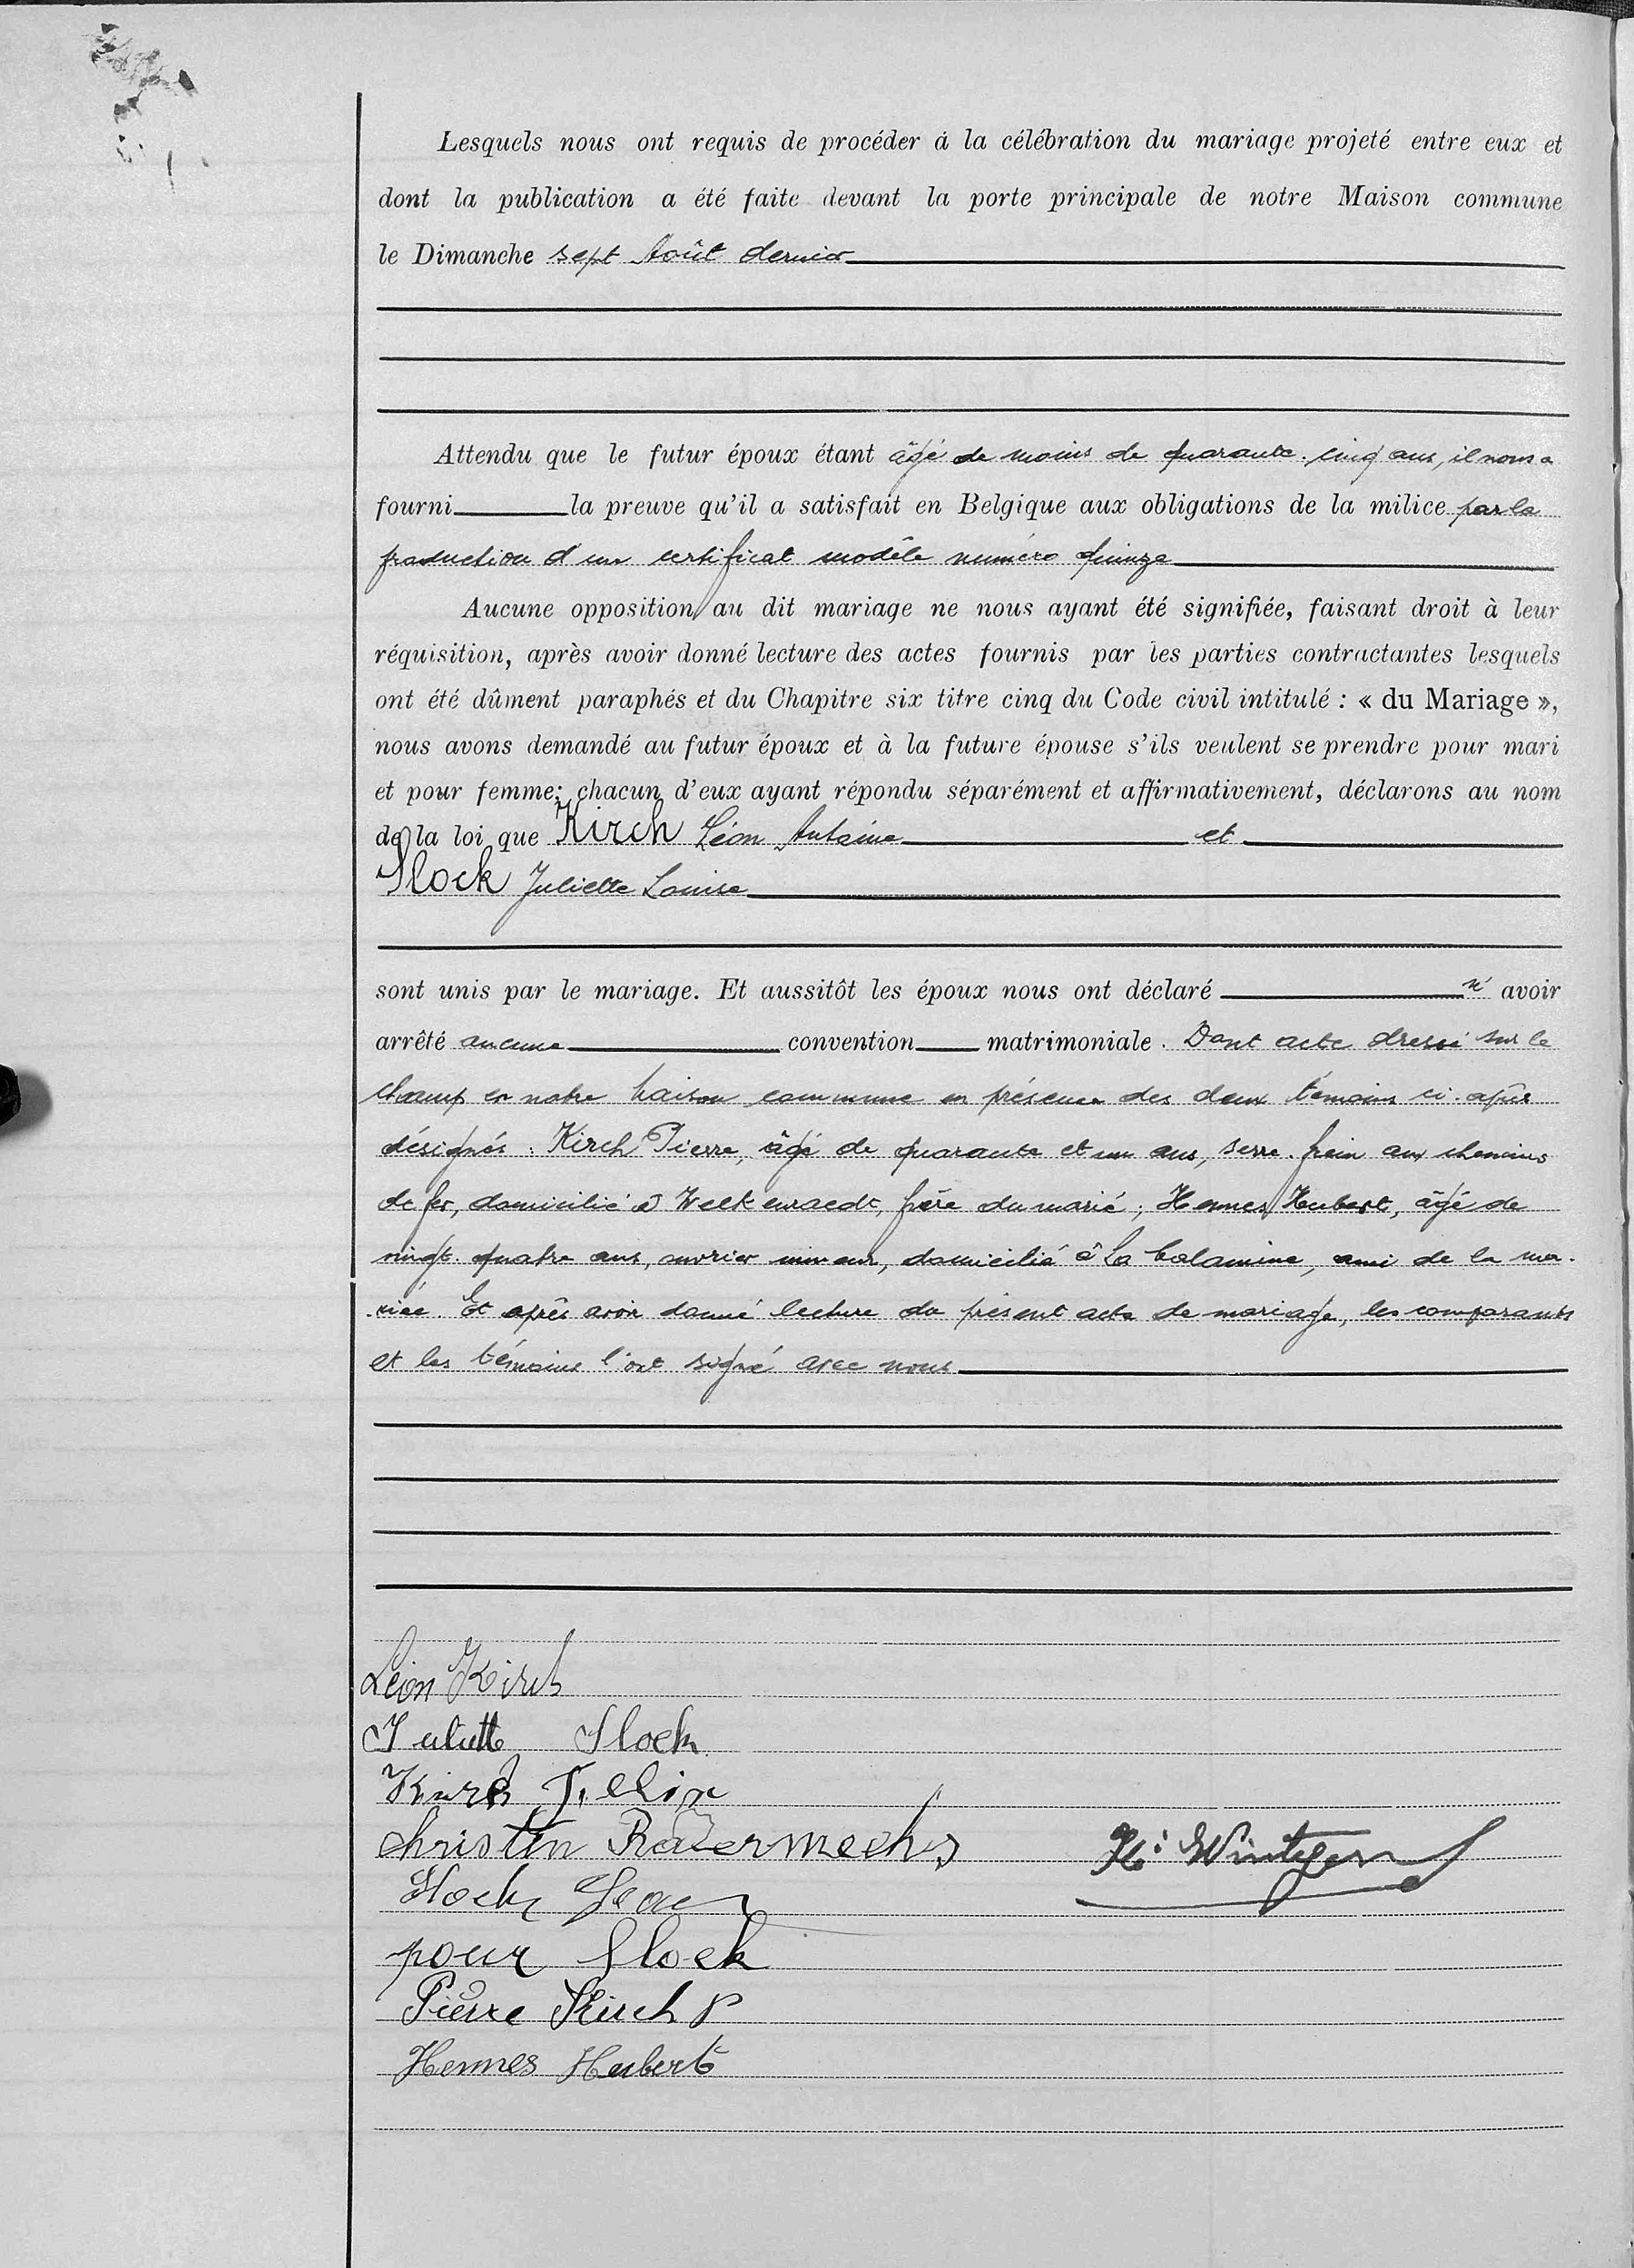 Lesquels nous ont requis de procéder à la célébration du mariage projeté entre eux et
dont la publication a été faite devant la porte principale de notre Maison commune
le Dimanche sept Août dernier
Attendu que le futur époux étant âgé de moins de quarante-cinq ans, il nous a
fourni la preuve qu'il a satisfait en Belgique aux obligations de la milice par la
production d'un certificat modèle numéro quinze
Aucune opposition au dit mariage ne nous ayant été signifiée, faisant droit à leur
réquisition, après avoir donné lecture des actes fournis par les parties contractantes lesquels
ont été dûment paraphés et du Chapitre six titre cinq du Code civil intitulé : « du Mariage »,
nous avons demandé au futur époux et à la future épouse s'ils veulent se prendre pour mari
et pour femme; chacun d'eux ayant répondu séparément et affirmativement, déclarons au nom
de la loi que Kirch Léon Antoine et
Slock Juliette Louise
sont unis par le mariage. Et aussitôt les époux nous ont déclaré n' avoir
arrêté aucune convention matrimoniale. Dont acte dressé sur le
champ en notre Maison commune en présence des deux témoins ci-après
désignés : Kirch Pierre, âgé de quarante et un ans, serre-frein aux chemins
de fer, domicilié à Welkenraedt, frère du marié ; Hennes Hubert, âgé de
vingt-quatre ans, ouvrier mineur, domicilié à La Calamine, ami de la ma-
riée. Et après avoir donné lecture du présent acte de mariage, les comparants
et les témoins l'ont signé avec nous
Léon Kirch
Juliette Slock
Kirch
Christin Radermecher
H. Wintgens
Slock Jean
pour Slock
Pierre Kirch P
Hennes Hubert